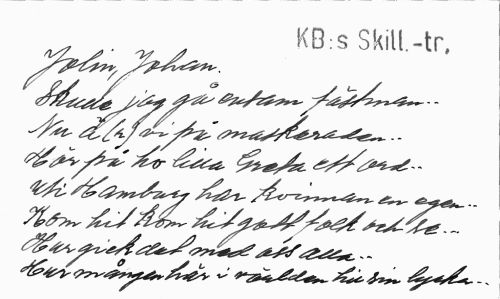 KB:s Skill.-tr.
Jolin, Johan.
Skude jag gå ensam, fästman..
Nu ä(r) vi på maskeraden..
Hör på ho lilla Greta ett ord..
uti Hamburg har kvinnan en egen..
Kom hit kom hit gott folk och se..
Hur gick det med oss alla..
Hur mången här i världen hu sin lycka..